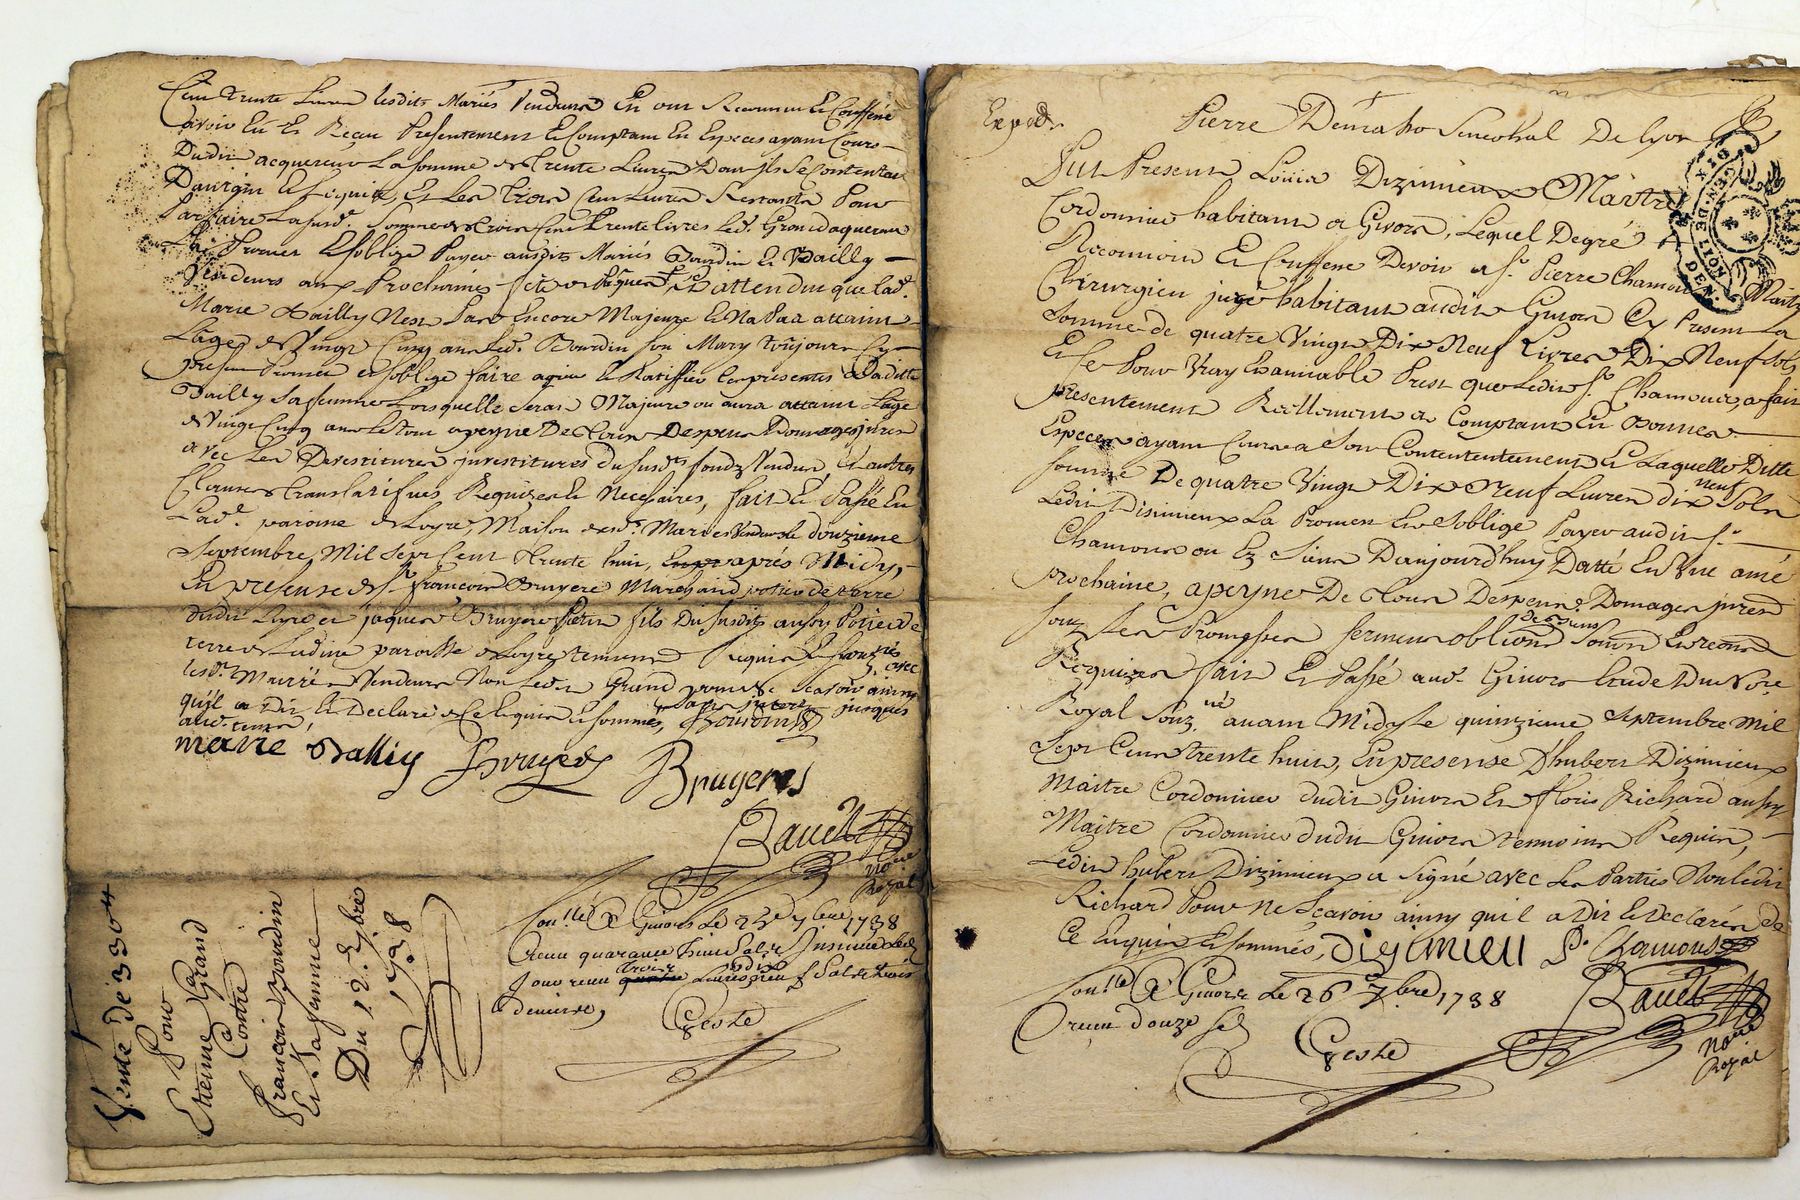 Cent trente Livres lesdits Mariés Vendeurs En ont Reconnu Et Confessé
avoir Eu Et Reçeu Presentement Et Comptant En Especes ayant Cours
Dudit acquereur La somme de trente Livres Dont ils Se Contentent
Et Les trois Cent Livres Restants Pour
Parfaire Lasusd.e Somme de trois Cent trente livres Led. Grand aquereur
La Promet Et soblige Payer ausdits Mariés Bourdin Et Bailly
Vendeurs aux Prochaines fetes de Et attendu que lad.
Marie Bailly Nest Pas Encore Majeure Et Na Pas attaint
Lage de Vingt Cinq ans Led. Bourdin son Mary toûjours Cy
present Promet et soblige faire agréer Et Ratiffier les presentes a Ladite
Bailly Sa femme Lorsquelle Sera Majeure ou aura attaint Lage
de Vingt Cinq ans le tout a peyne De tous Despens Domages jnterets
avec Les Devestitures jnvestitures du susd.ts fondz Vendus, Et autres
Clauses translatifves Requizes Et Necessaires, fait Et Passé En
Lad.e paroisse de Loyre, Maison desd. Mariés Vendeurs le douzieme
Septembre Mil Sept Cent trente huit, aprés Midy,
En presense de S.r francois Bruyere Marchand potier de terre
dudit Loyre et jaques Bruyere fils Du susdit aussy Potier de
terre de Ladite paroisse de Loyre temoins Requis Et signés avec
lesd. Mariés Vendeurs Non Led. Grand pour ne Scavoir ainsy
qu'il a Dit Et Declaré de Ce Enquis Et sommé, Bourdin
marie Bailly Bruyere Bruyeres
Bauet
No.re
Royal
Con.llé A Givors Le 23e 7bre 1738
Receu quarante huit Sols Insinué Led.
Jour receu trois Livres dix Sols trois
deniers,
Geste
Vente de 330 tt
Pour
Etienne Grand
Contre
francois Bourdin
Et Sa femme
Du 12. 7bre
1738
Exped.
Pierre Senechal De Lyon
DIX
DEN.
GEN. DE LION
Fut Present Louis Dizimieux Maitre
Cordonnier habitant a Givors, Lequel De gré a
Reconnu Et Confessé Devoir a S.r Pierre Chamous Maitre
Chirurgien juré habitant audit Givors Cy Present La
Somme de quatre Vingt Dix Neuf Livres Dix Neuf sols
Et Ce Pour Vray Et amiable Prest que Ledit S.r Chamous, a fait
presentement Reellement a Comptant En bonnes
Especes ayant Cours a Son Contentement Et Laquelle Ditte
somme De quatre Vingt Dix Neuf Livres dix neuf Sols
Ledit Disimieux La Promet Et soblige Payer audit S.r
Chamous ou Ez Siens D'aujourd'huy Datté En Une anné
prochaine, a peyne De tous Despens Domages jnterets
souz Les Promesses serment obligons
Requizes fait Et Passé aud. Givors Etude Du No.re
Royal Souz.né avant Midy Le quinzieme Septembre Mil
Sept Cent trente huit, En presense D'hubert Dizimieux
Maitre Cordonnier dudit Givors Et floris Richard aussy
Maitre Cordonnier dudit Givors temoins Requis,
Ledit hubert Dizimieux a signé avec Les Parties Non ledit
Richard Pour Ne Scavoir ainsy qu'il a Dit Et Declaré de
Ce Enquis Et sommés, dizimieu P. Chamous
Con.llé A Givors Le 26 7bre 1738 Bauet
receu douze sols
Geste
No.re
Royal